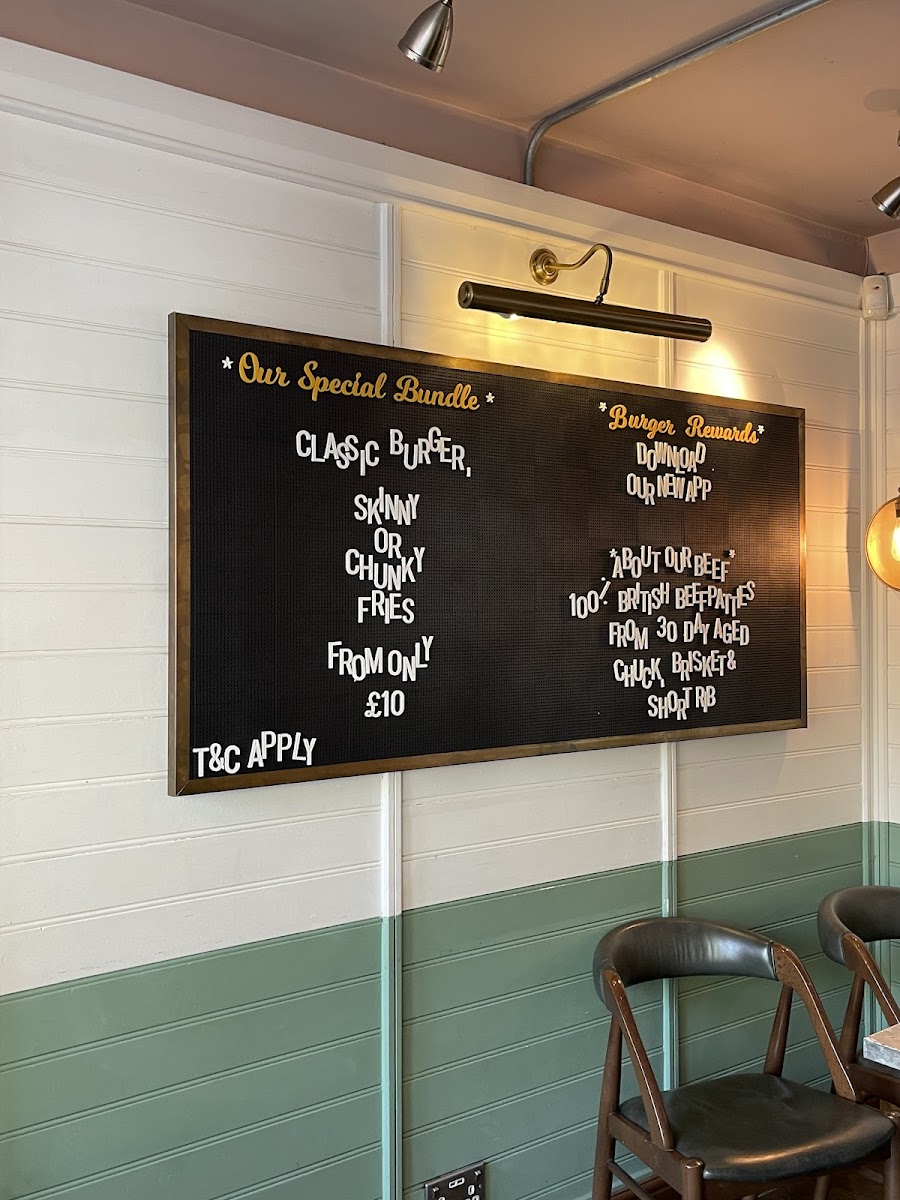 *Our Special Bundle*
CLASSIC BURGER,
SKINNY
OR
CHUNKY
FRIES
FROM ONLY
£10
T&C APPLY
*Burger Rewards*
DOWNLOAD
OUR NEW APP
*ABOUT OUR BEEF*
100% BRITISH BEEF PATTIES
FROM 30 DAY AGED
CHUCK, BRISKET &
SHORT RIB